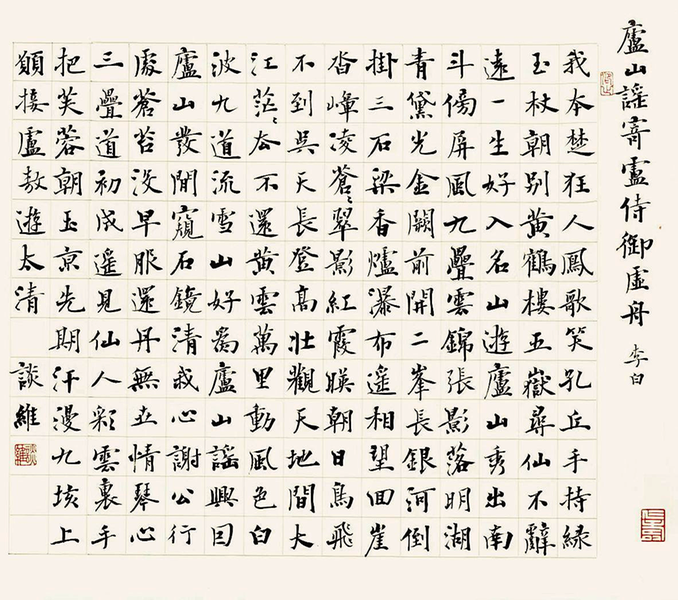 廬山謡寄盧侍御虛舟 李白
我本楚狂人鳳歌笑孔丘手持緑
玉杖朝別黄鶴樓五嶽尋仙不辭
遠一生好入名山遊廬山秀出南
斗傍屏風九疊雲錦張影落明湖
青黛光金闕前開二峯長銀河倒
掛三石梁香爐瀑布遥相望回崖
沓嶂凌蒼〻翠影紅霞暎朝日鳥飛
不到吳天長登高壯觀天地間大
江茫〻去不還黄雲萬里動風色白
波九道流雪山好爲廬山謡興因
廬山發閒窺石鏡清我心謝公行
處蒼苔没早服還丹無世情琴心
三疊道初成遥見仙人彩雲裏手
把芙蓉朝玉京先期汗漫九垓上
願接盧敖遊太清 談維